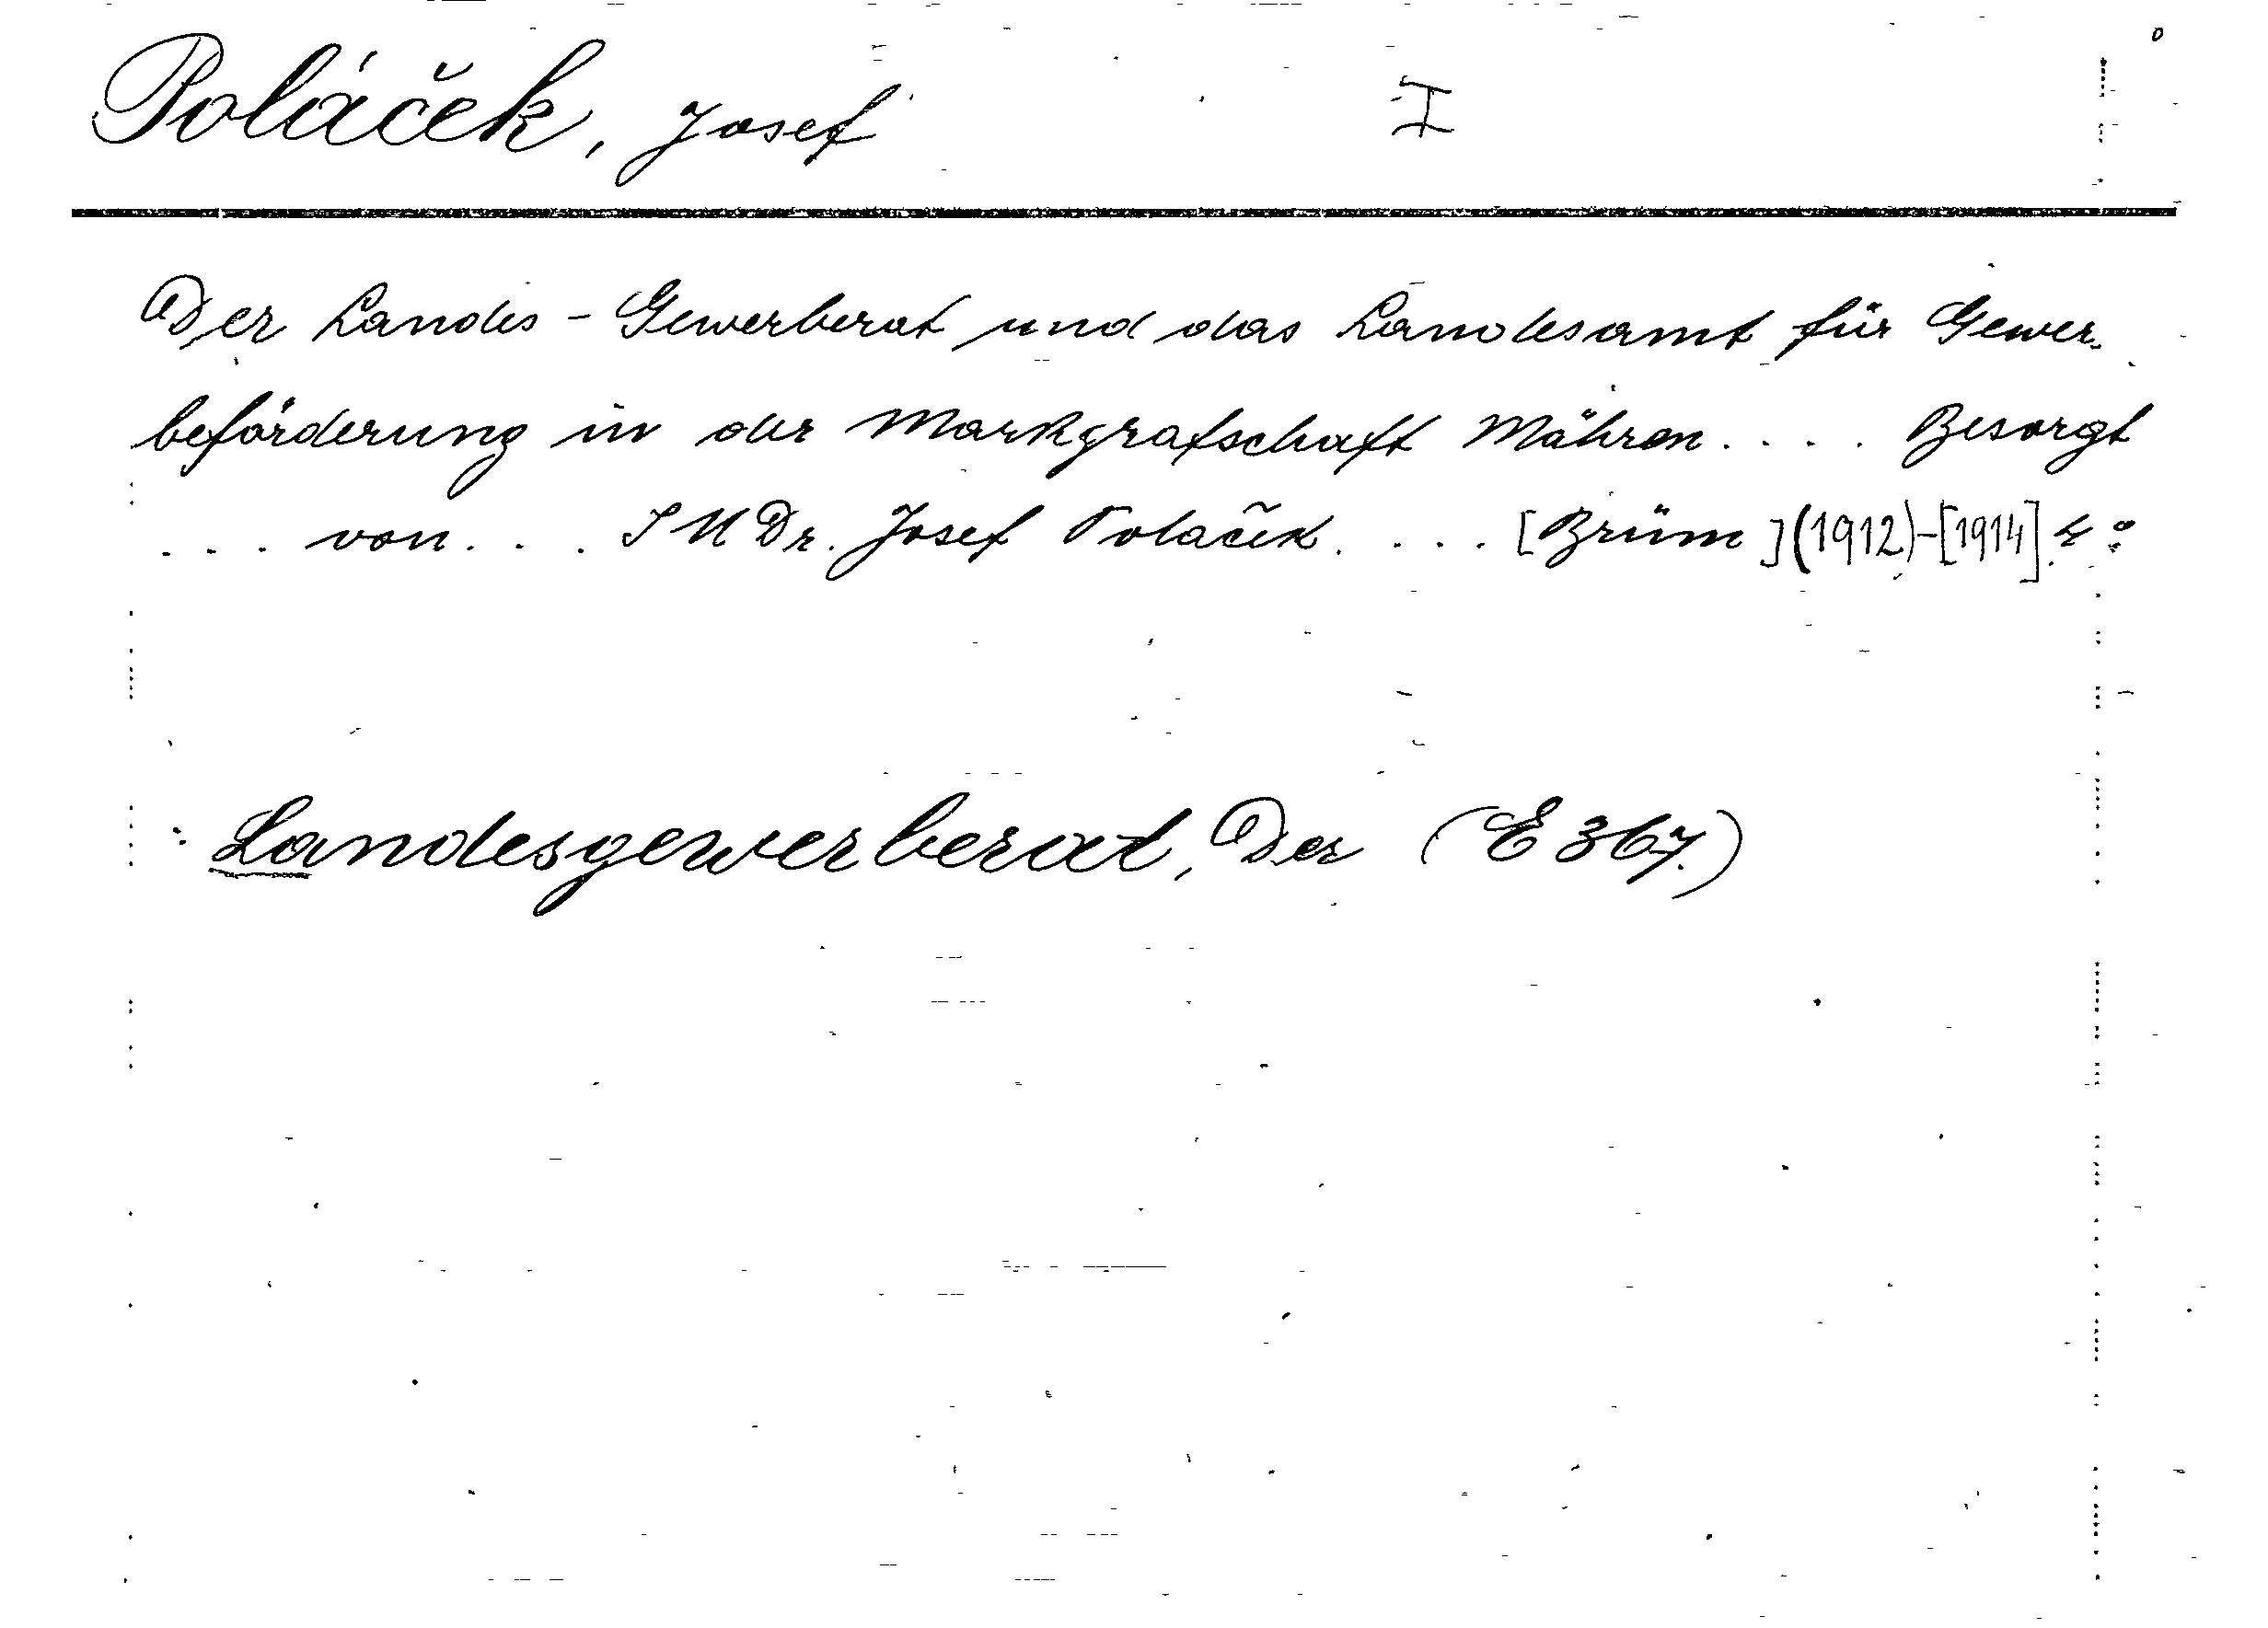 Poláček, Josef I
Der Landes-Gewerberat und das Landesamt für Gewer-
beförderung in der Markgrafschaft Mähren.... Besorgt
... von... JUDr. Josef Polaček.... [Brünn](1912)-[1914] 4°
Landesgewerberat, Der (E 367.)